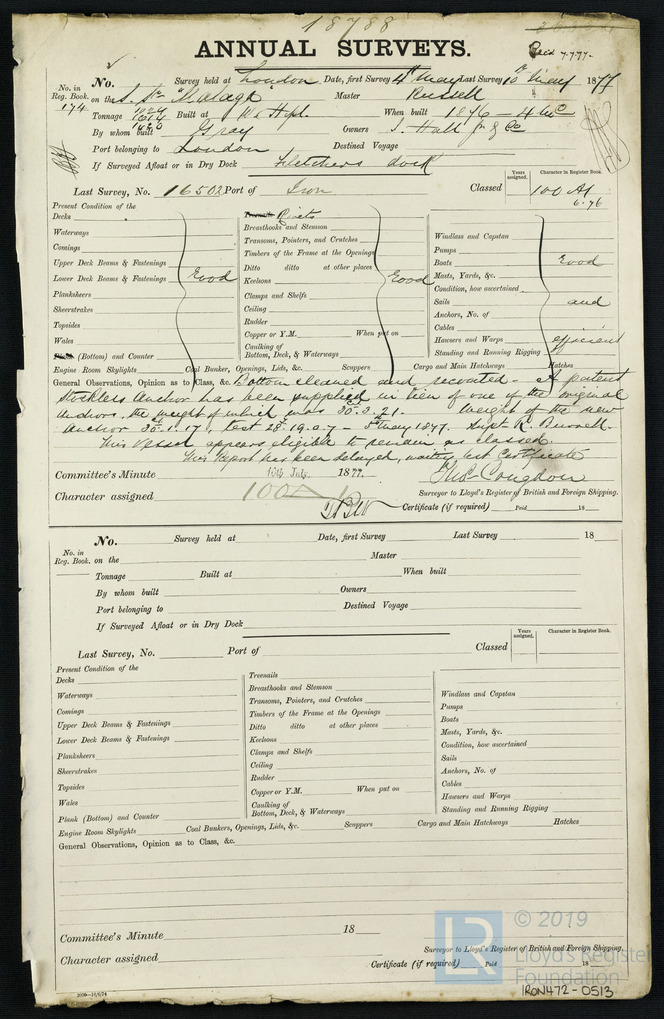 18788
ANNUAL SURVEYS.
Paid 7-7-77-
No. in Reg. Book. No. Survey held at London Date, first Survey 4th May Last Survey 10th May 1877
174 on the S. Sr "Malaga" Master Russell
Tonnage 1614 Built at W. Htpl. When built 1876 - 4 mo
By whom built Gray Owners J. Hall Jr & Co
Port belonging to London Destined Voyage
If Surveyed Afloat or in Dry Dock Fletchers dock
Years assigned. Character in Register Book.
Last Survey, No. 16502 Port of Iron Classed 100 A1
6.76
Present Condition of the
Decks
Waterways
Comings
Upper Deck Beams & Fastenings
Lower Deck Beams & Fastenings Good
Planksheers
Sheerstrakes
Topsides
Wales
(Bottom) and Counter
Engine Room Skylights
Rivets
Breasthooks and Stemson
Transoms, Pointers, and Crutches
Timbers of the Frame at the Openings
Ditto ditto at other places
Keelsons Good
Clamps and Shelfs
Ceiling
Rudder
Copper or Y.M. When put on
Caulking of
Bottom, Deck, & Waterways
Coal Bunker, Openings, Lids, &c. Scuppers
Windlass and Capstan
Pumps
Boats Good
Masts, Yards, &c.
Condition, how ascertained
Sails and
Anchors, No. of
Cables
Hawsers and Warps efficient
Standing and Running Rigging
Cargo and Main Hatchways Hatches
General Observations, Opinion as to Class, &c. Bottom cleaned and recoated - A patent
Stockless Anchor has been supplied in lieu of one of the original
Anchors, the weight of which was 30.3.21. Weight of the new
Anchor 30.1.17, test 28.19.0.7 - 5th May 1877. Supt R. Burrell.
This Vessel appears eligible to remain as classed.
This Report has been delayed, waiting test Certificate
Committee's Minute 10th July 1877.
Character assigned 100 A 1
Surveyor to Lloyd's Register of British and Foreign Shipping.
Certificate (if required) Paid 18
No. in Reg. Book. No. Survey held at Date, first Survey Last Survey 18
on the Master
Tonnage Built at When built
By whom built Owners
Port belonging to Destined Voyage
If Surveyed Afloat or in Dry Dock
Years assigned. Character in Register Book.
Last Survey, No. Port of Classed
Present Condition of the
Decks
Waterways
Comings
Upper Deck Beams & Fastenings
Lower Deck Beams & Fastenings
Planksheers
Sheerstrakes
Topsides
Wales
Plank (Bottom) and Counter
Engine Room Skylights
Treenails
Breasthooks and Stemson
Transoms, Pointers, and Crutches
Timbers of the Frame at the Openings
Ditto ditto at other places
Keelsons
Clamps and Shelfs
Ceiling
Rudder
Copper or Y.M. When put on
Caulking of
Bottom, Deck, & Waterways
Coal Bunkers, Openings, Lids, &c. Scuppers
Windlass and Capstan
Pumps
Boats
Masts, Yards, &c.
Condition, how ascertained
Sails
Anchors, No. of
Cables
Hawsers and Warps
Standing and Running Rigging
Cargo and Main Hatchways Hatches
General Observations, Opinion as to Class, &c.
Committee's Minute 18
Character assigned
Surveyor to Lloyd's Register of British and Foreign Shipping.
Certificate (if required) Paid 18
LR © 2019
Lloyd's Register
Foundation
IRON472-0513